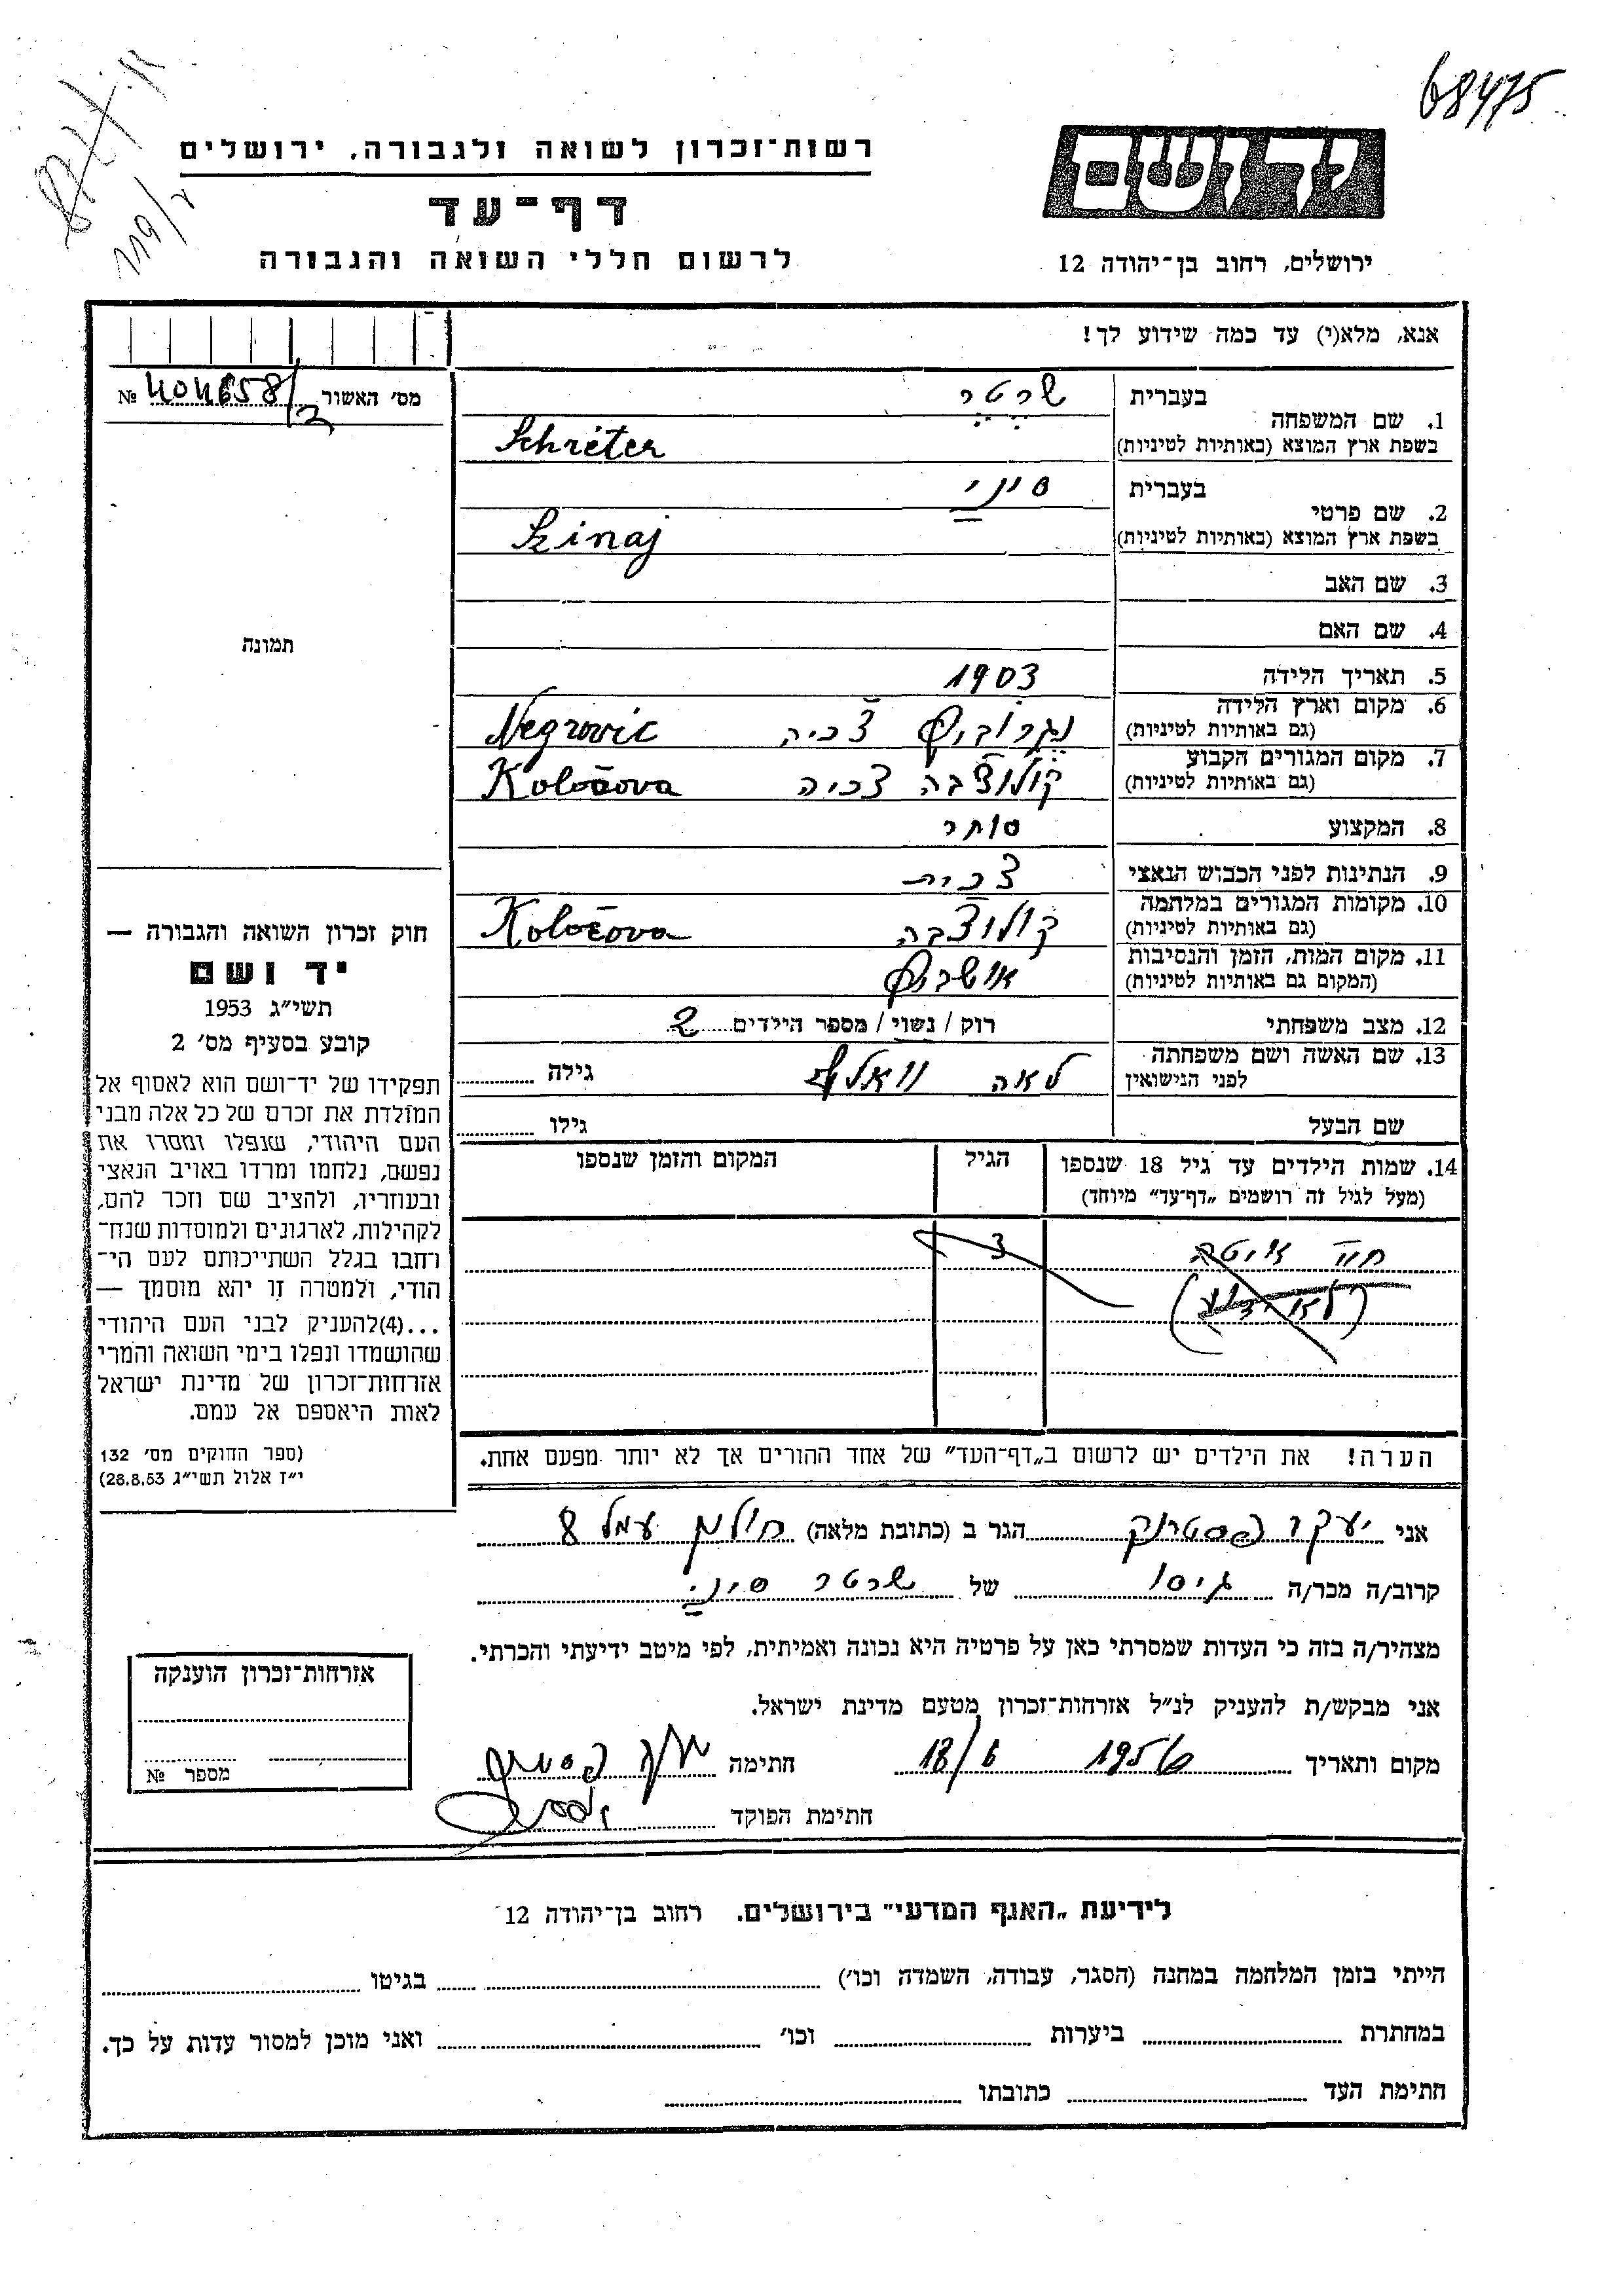 68475
רשות־זכרון לשואה ולגבורה, ירושלים
יד ושם
דף־עד
לרשום חללי השואה והגבורה
ירושלים, רחוב בן־יהודה 12
119/2
אנא, מלא(י) עד כמה שידוע לך!
מס׳ האשור № 404658/2
1. שם המשפחה
בעברית שרטר
בשפת ארץ המוצא (באותיות לטיניות) Schréter
2. שם פרטי
בעברית סיני
בשפת ארץ המוצא (באותיות לטיניות) Szinaj
3. שם האב
4. שם האם
תמונה
5. תאריך הלידה 1903
6. מקום וארץ הלידה נגרוביץ צ׳כיה Negrovic
(גם באותיות לטיניות)
7. מקום המגורים הקבוע קולוצ׳בה צ׳כיה Koločova
(גם באותיות לטיניות)
8. המקצוע סוחר
9. הנתינות לפני הכבוש הנאצי צ׳כית
10. מקומות המגורים במלחמה קולוצ׳בה Koločova
(גם באותיות לטיניות)
11. מקום המות, הזמן והנסיבות אושביץ
(המקום גם באותיות לטיניות)
12. מצב משפחתי רוק / נשוי / מספר הילדים 2
13. שם האשה ושם משפחתה לאה וואלף גילה
לפני הנישואין
שם הבעל גילו
14. שמות הילדים עד גיל 18 שנספו הגיל המקום והזמן שנספו
(מעל לגיל זה רושמים „דף־עד״ מיוחד)
חיה 3
הערה! את הילדים יש לרשום ב„דף־העד״ של אחד ההורים אך לא יותר מפעם אחת.
חוק זכרון השואה והגבורה —
יד ושם
תשי״ג 1953
קובע בסעיף מס׳ 2
תפקידו של יד־ושם הוא לאסוף אל
המולדת את זכרם של כל אלה מבני
העם היהודי, שנפלו ומסרו את
נפשם, נלחמו ומרדו באויב הנאצי
ובעוזריו, ולהציב שם וזכר להם,
לקהילות, לארגונים ולמוסדות שנח־
רחבו בגלל השתייכותם לעם הי־
הודי, ולמטרה זו יהא מוסמך —
...(4)להעניק לבני העם היהודי
שהושמדו ונפלו בימי השואה והמרי
אזרחות־זכרון של מדינת ישראל
לאות היאספם אל עמם.
(ספר החוקים מס׳ 132
י״ז אלול תשי״ג 28.8.53)
אני יעקב פסטרנק הגר ב (כתובת מלאה) חולון עמל 8
קרוב/ה מכר/ה גיסו של שרטר סיני
מצהיר/ה בזה כי העדות שמסרתי כאן על פרטיה היא נכונה ואמיתית, לפי מיטב ידיעתי והכרתי.
אני מבקש/ת להעניק לנ״ל אזרחות־זכרון מטעם מדינת ישראל.
מקום ותאריך 1956 18/6 חתימה
חתימת הפוקד
אזרחות־זכרון הוענקה
מספר №
לידיעת „האגף המדעי״ בירושלים. רחוב בן־יהודה 12
הייתי בזמן המלחמה במחנה (הסגר, עבודה, השמדה וכו׳) בגיטו
במחתרת ביערות וכו׳ ואני מוכן למסור עדות על כך.
חתימת העד כתובתו